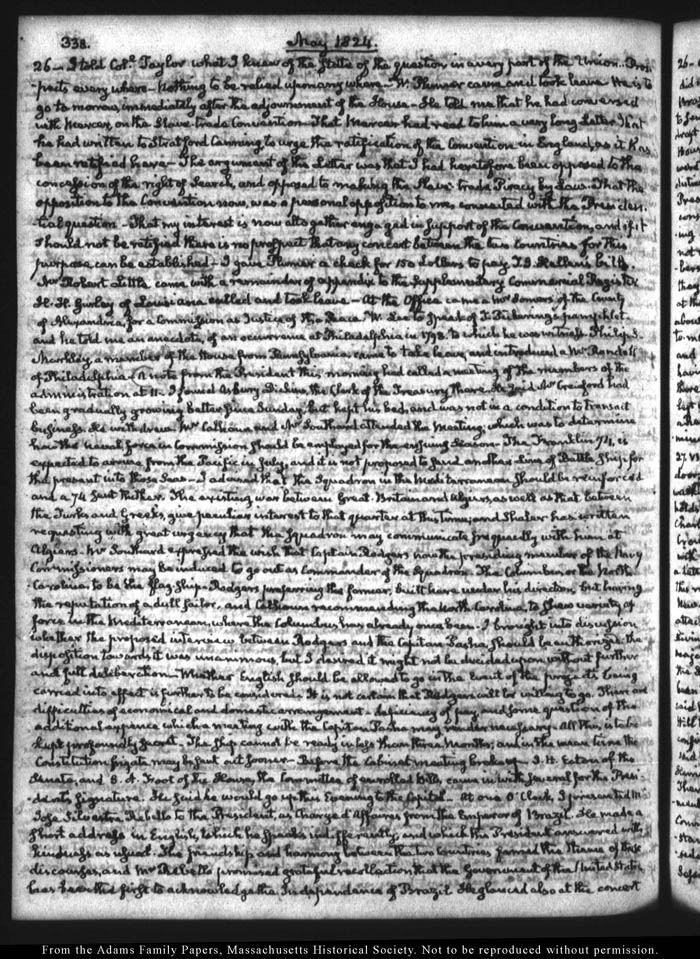 338.
May 1824.
26 — I told Col. Taylor what I knew of the state of the question in every part of the Union. Pros-
pects every where — Nothing to be relied upon any where — W. Plumer came and took leave. He is to
go to morrow, immediately after the adjournment of the House — He told me that he had conversed
with Mercer, on the Slave trade Convention — That Mercer had read to him a very long Letter that
he had written to Stratford Canning, to urge the ratification of the Convention in England, as it has
been ratified here — The argument of the Letter was that I had heretofore been opposed to the
concession of the right of Search, and opposed to making the Slave trade Piracy by Law — That the
opposition to the Convention now, was a personal opposition to me, connected with the Presiden-
tial question — That my interest is now altogether engaged in support of the Convention, and if it
should not be ratified there is no prospect that any concert between the two Countries for this
purpose can be established — I gave Plumer a check for 150 dollars to pay bill.
Mr Robert Little came with a remainder of appendix to the Supplementary Commercial Register
H. H. Gurley of Louisiana called and took leave — At the Office came a Mr Somers of the County
of Alexandria, for a Commission as Justice of the Peace. W. Lee to speak of T. Pickering's pamphlet
and he told me an anecdote, of an occurrence at Philadelphia in 1798. to which he was witness. Philip S.
Markley, a member of the House from Pennsylvania came to take leave, and introduced a Mr Randall
of Philadelphia. A note from the President this morning had called a meeting of the members of the
administration at 11. I found Asbury Dickins, the Clerk of the Treasury there. He said Mr Crawford had
been gradually growing better since Sunday, but kept his bed, and was not in a condition to transact
business. He withdrew. Mr Calhoun and Mr Southard attended the Meeting; which was to determine
how the naval force in Commission should be employed for the ensuing season — The Franklin 74, is
expected to arrive from the Pacific in July, and it is not proposed to send another Line of Battle Ship for
the present into those Seas — I advised that the Squadron in the Mediterranean should be reinforced
and a 74 sent thither. The existing war between Great Britain and Algiers, as well as that between
the Turks and Greeks, give peculiar interest to that quarter at this time; and Shaler has written
requesting with great urgency that the Squadron may communicate frequently with him at
Algiers. Mr Southard expressed the wish that Captain Rodgers now the presiding member of the Navy
Commissioners may be induced to go out as Commander of the Squadron. The Columbus, or the North
Carolina, to be the flag ship. Rodgers preferring the former, built here under his direction, but having
the reputation of a dull sailor, and Calhoun recommending the North Carolina, to shew variety of
force in the Mediterranean, where the Columbus has already once been. I brought into discussion
whether the proposed interview between Rodgers and the Capitan Pasha, should be authorized; the
disposition towards it was unanimous, but I desired it might not be decided upon, without further
and full deliberation — Whether English should be allowed to go in the event of the project being
carried into effect is further to be considered. It is not certain that Rodgers will be willing to go. There are
difficulties of economical and domestic arrangement — deficiency of pay, and some question of the
additional expence which a meeting with the Capitan Pasha may render necessary. All this, is to be
kept profoundly secret — The Ship cannot be ready in less than three Months; and in the mean time the
Constitution frigate may be sent out sooner — Before the Cabinet meeting broke up J. H. Eaton of the
Senate, and S. A. Foot of the House, the Committee of enrolled Bills, came in with several for the Presi-
dent's signature. He said he would go up this Evening to the Capitol — At one O'Clock, I presented Mr
José Silvestre Rebello to the President, as Chargé d'Affaires from the Emperor of Brazil. He made a
short address in English, which he speaks indifferently, and which the President answered with
kindness as usual. The friendship and harmony between the two countries formed the theme of these
discourses, and Mr Rebello promised grateful recollection that the Government of the United States,
has been the first to acknowledge the Independence of Brazil. He glanced also at the concert
From the Adams Family Papers, Massachusetts Historical Society. Not to be reproduced without permission.